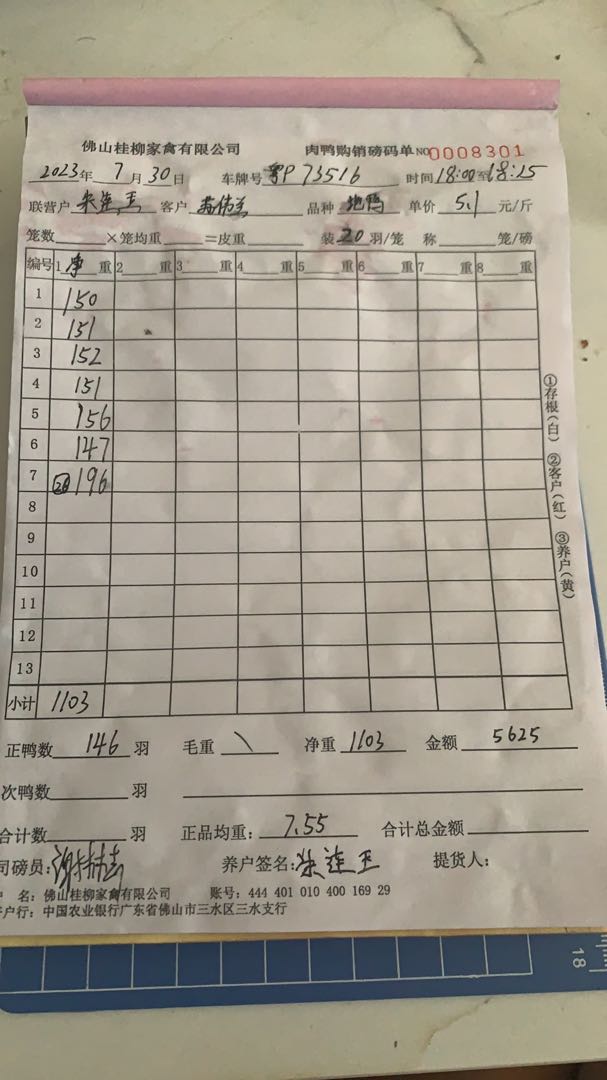 佛山桂柳家禽有限公司 肉鸭购销磅码单 NO 0008301
2023年 7月 30日 车牌号 粤P 73516 时间 18:00至18:15
联营户 朱连玉 客户 伟 品种 地鸭 单价 5.1 元/斤
笼数 ×笼均重 =皮重 装 20 羽/笼 称 笼/磅
编号 1 净 重 2 重 3 重 4 重 5 重 6 重 7 重 8 重
1 150
2 151
3 152
4 151
5 156
6 147
7 26 196
8
9
10
11
12
13
小计 1103
正鸭数 146 羽 毛重 \ 净重 1103 金额 5625
次鸭数 羽
合计数 羽 正品均重: 7.55 合计总金额
司磅员: 谢 养户签名: 朱连玉 提货人:
户 名: 佛山桂柳家禽有限公司 账号: 444 401 010 400 169 29
户行: 中国农业银行广东省佛山市三水区三水支行
①存根(白) ②客户(红) ③养户(黄)
18